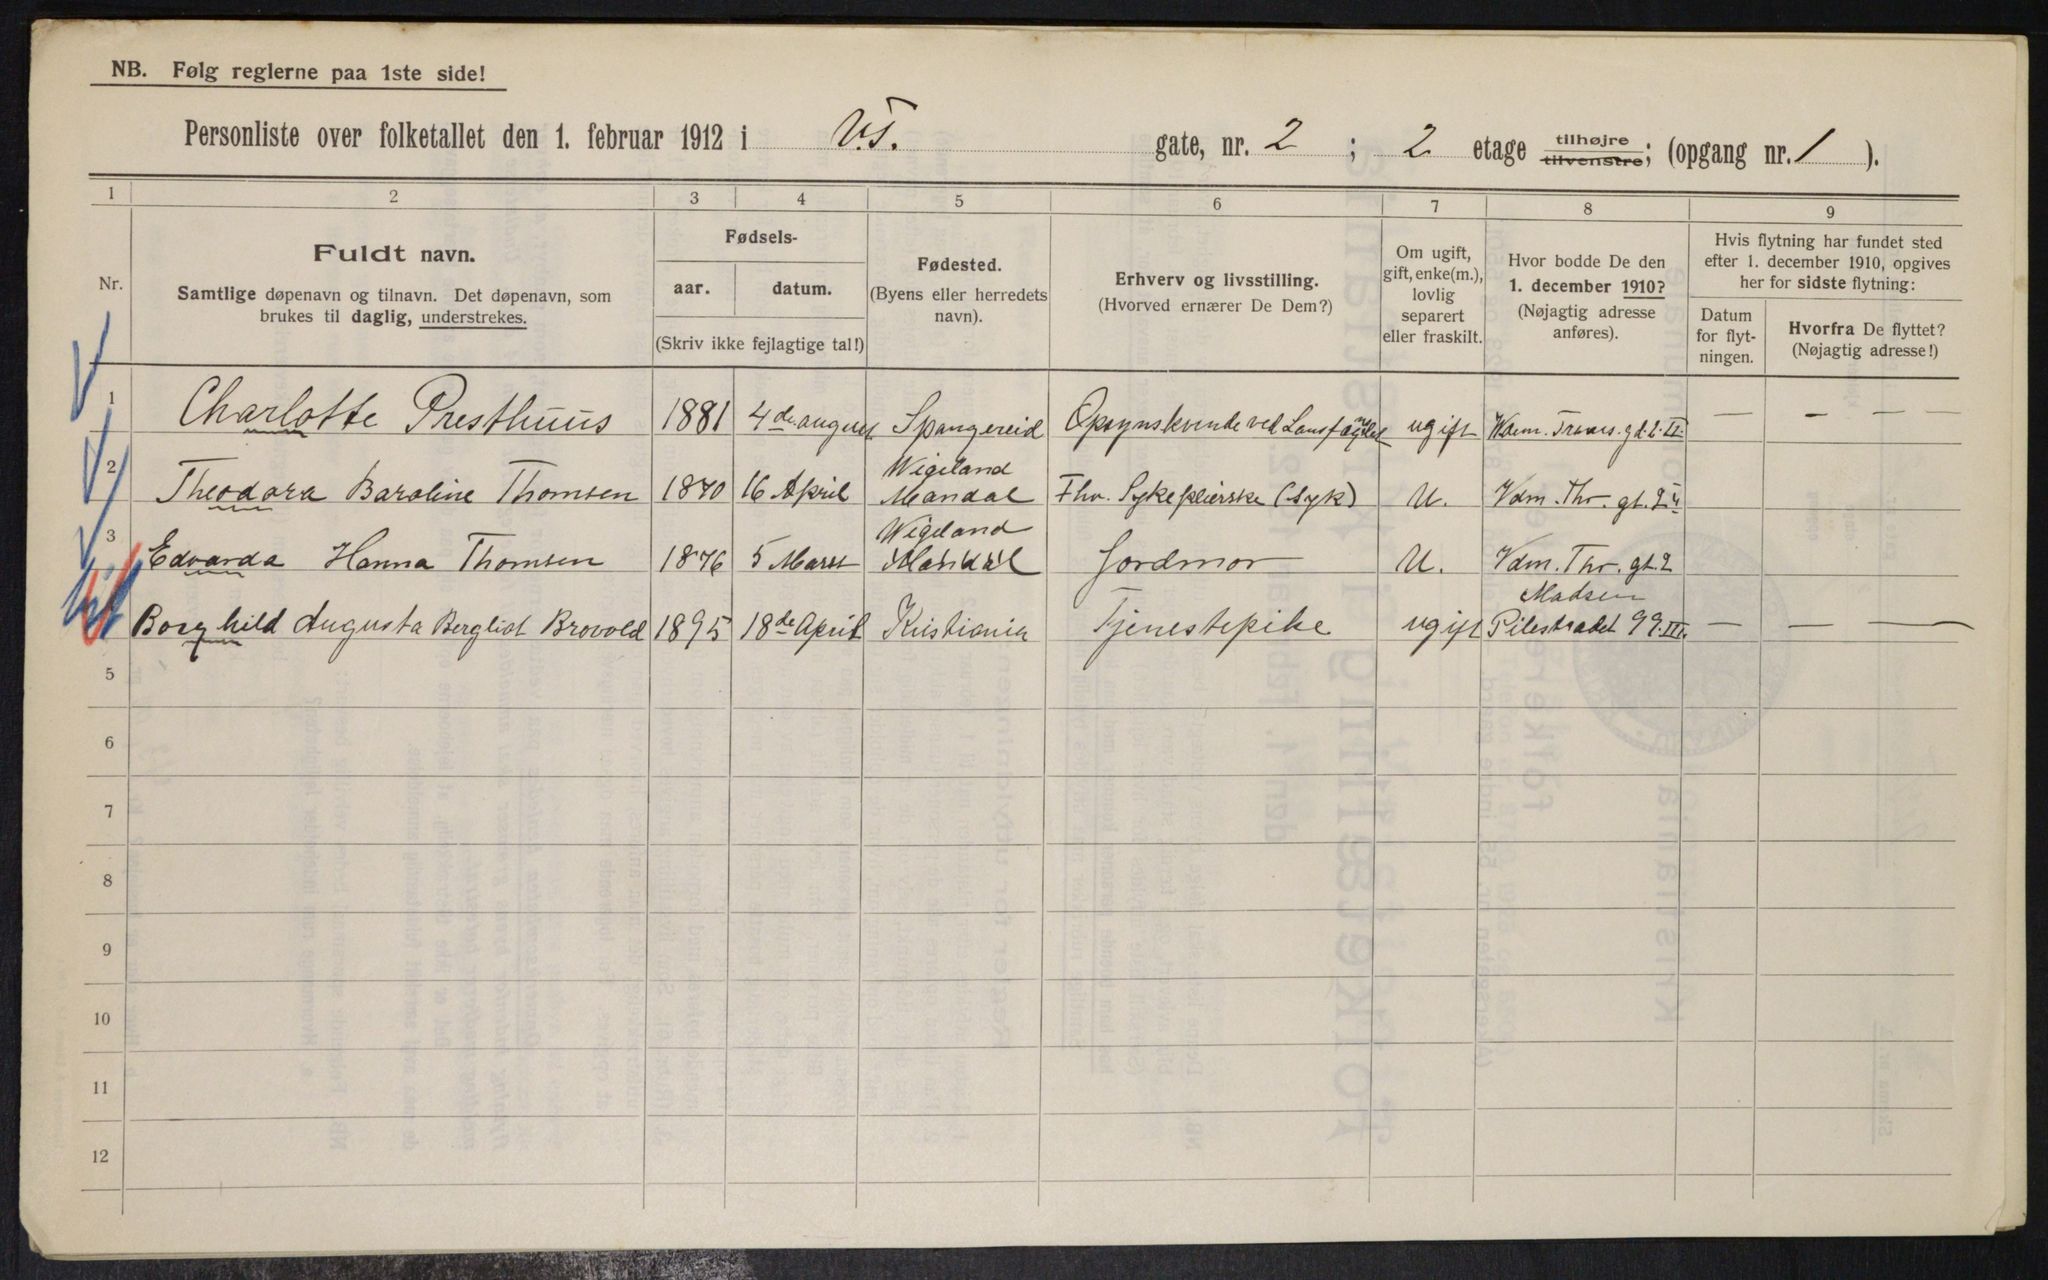 NB. Følg reglerne paa 1ste side!
Personliste over folketallet den 1. februar 1912 i V.T. gate, nr. 2 ; 2 etage tilhøjre tilvenstre; (opgang nr. 1 ).
1 2 3 4 5 6 7 8 9
Nr.
Fuldt navn.
Samtlige døpenavn og tilnavn. Det døpenavn, som
brukes til daglig, understrekes.
Fødsels-
aar. datum.
(Skriv ikke fejlagtige tal!)
Fødested.
(Byens eller herredets
navn).
Erhverv og livsstilling.
(Hvorved ernærer De Dem?)
Om ugift,
gift, enke(m.),
lovlig
separert
eller fraskilt.
Hvor bodde De den
1. december 1910?
(Nøjagtig adresse
anføres).
Hvis flytning har fundet sted
efter 1. december 1910, opgives
her for sidste flytning:
Datum
for flyt-
ningen.
Hvorfra De flyttet?
(Nøjagtig adresse!)
1 Charlotte Presthuus 1881 4de august Spangereid Opsynskvinde ved ugift — — — —
2 Theodora Baroline Thomsen 1870 16 April Wigeland Mandal Fhv. Sykepleierske (syk) U. Vdm. Thr. gt. 2
3 Edvarda Hanna Thomsen 1876 5 Marts Wigeland Mandal Jordmor U. Vdm. Thr. gt. 2
Borghild Augusta Bergliot Brovold 1895 18de April Kristiania Tjenestepike ugift Madsen Pilestradet 99 III. — — —
5
6
7
8
9
10
11
12